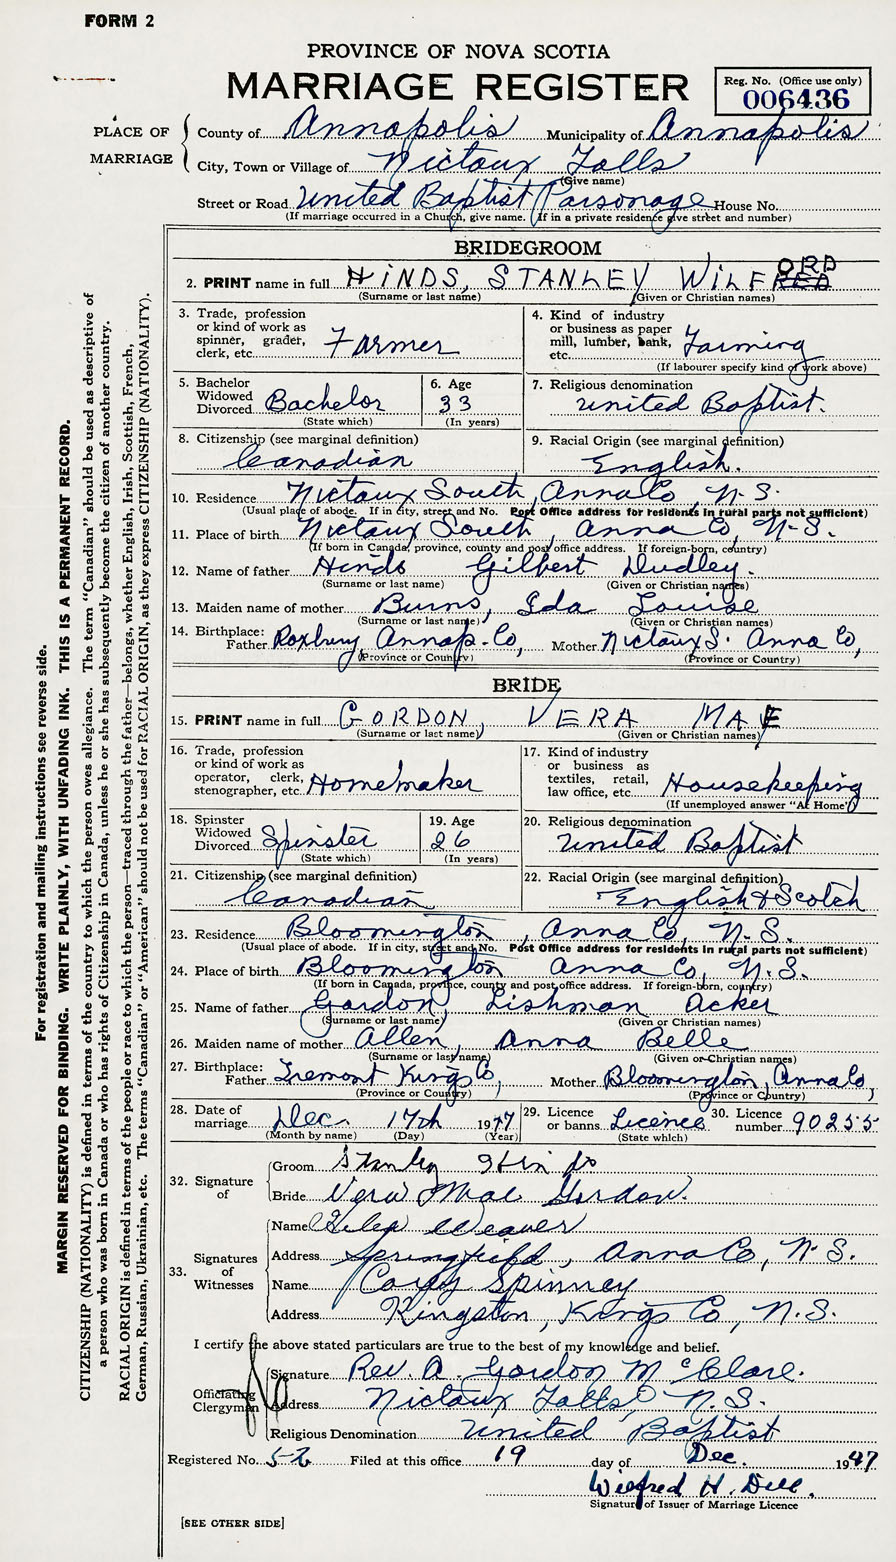 FORM 2
PROVINCE OF NOVA SCOTIA
MARRIAGE REGISTER
Reg. No. (Office use only)
006436
PLACE OF MARRIAGE
County of Annapolis Municipality of Annapolis
City, Town or Village of Nictaux Falls
(Give name)
Street or Road United Baptist Parsonage House No.
(If marriage occurred in a Church, give name. If in a private residence give street and number)
BRIDEGROOM
2. PRINT name in full HINDS, STANLEY WILFORD
(Surname or last name) (Given or Christian names)
3. Trade, profession or kind of work as spinner, grader, clerk, etc. Farmer
4. Kind of industry or business as paper mill, lumber, bank, etc. Farming
(If labourer specify kind of work above)
5. Bachelor Widowed Divorced Bachelor
(State which)
6. Age 33
(In years)
7. Religious denomination United Baptist.
8. Citizenship (see marginal definition) Canadian
9. Racial Origin (see marginal definition) English.
10. Residence Nictaux South, Anna Co, N.S.
(Usual place of abode. If in city, street and No. Post Office address for residents in rural parts not sufficient)
11. Place of birth Nictaux South, Anna Co, N.S.
(If born in Canada, province, county and post office address. If foreign-born, country)
12. Name of father Hinds Gilbert Dudley.
(Surname or last name) (Given or Christian names)
13. Maiden name of mother Burns, Ida Louise
(Surname or last name) (Given or Christian names)
14. Birthplace: Father Roxbury, Annap. Co, Mother Nictaux S. Anna Co,
(Province or Country) (Province or Country)
BRIDE
15. PRINT name in full GORDON, VERA MAE
(Surname or last name) (Given or Christian names)
16. Trade, profession or kind of work as operator, clerk, stenographer, etc. Homemaker
17. Kind of industry or business as textiles, retail, law office, etc. Housekeeping
(If unemployed answer "At Home")
18. Spinster Widowed Divorced Spinster
(State which)
19. Age 26
(In years)
20. Religious denomination United Baptist
21. Citizenship (see marginal definition) Canadian
22. Racial Origin (see marginal definition) English & Scotch
23. Residence Bloomington, Anna Co, N.S.
(Usual place of abode. If in city, street and No. Post Office address for residents in rural parts not sufficient)
24. Place of birth Bloomington Anna Co, N.S.
(If born in Canada, province, county and post office address. If foreign-born, country)
25. Name of father Gordon, Lishman Acker
(Surname or last name) (Given or Christian names)
26. Maiden name of mother Allen, Anna Belle
(Surname or last name) (Given or Christian names)
27. Birthplace: Father Tremont Kings Co, Mother Bloomington, Anna Co,
(Province or Country) (Province or Country)
28. Date of marriage Dec 17th 1947
(Month by name) (Day) (Year)
29. Licence or banns Licence
(State which)
30. Licence number 90255
32. Signature of
Groom Stanley Hinds
Bride Vera Mae Gordon.
33. Signatures of Witnesses
Name Weaver
Address Springfield, Anna Co, N.S.
Name Spinney
Address Kingston, Kings Co, N.S.
I certify the above stated particulars are true to the best of my knowledge and belief.
Officiating Clergyman
Signature Rev. A. Gordon McClare.
Address Nictaux Falls, N.S.
Religious Denomination United Baptist
Registered No. 52 Filed at this office 19 day of Dec. 1947
Wilfred H. Dell.
Signature of Issuer of Marriage Licence
[SEE OTHER SIDE]
For registration and mailing instructions see reverse side.
MARGIN RESERVED FOR BINDING. WRITE PLAINLY, WITH UNFADING INK. THIS IS A PERMANENT RECORD.
CITIZENSHIP (NATIONALITY) is defined in terms of the country to which the person owes allegiance. The term "Canadian" should be used as descriptive of
a person who was born in Canada or who has rights of Citizenship in Canada, unless he or she has subsequently become the citizen of another country.
RACIAL ORIGIN is defined in terms of the people or race to which the person—traced through the father—belongs, whether English, Irish, Scottish, French,
German, Russian, Ukrainian, etc. The terms "Canadian" or "American" should not be used for RACIAL ORIGIN, as they express CITIZENSHIP (NATIONALITY).